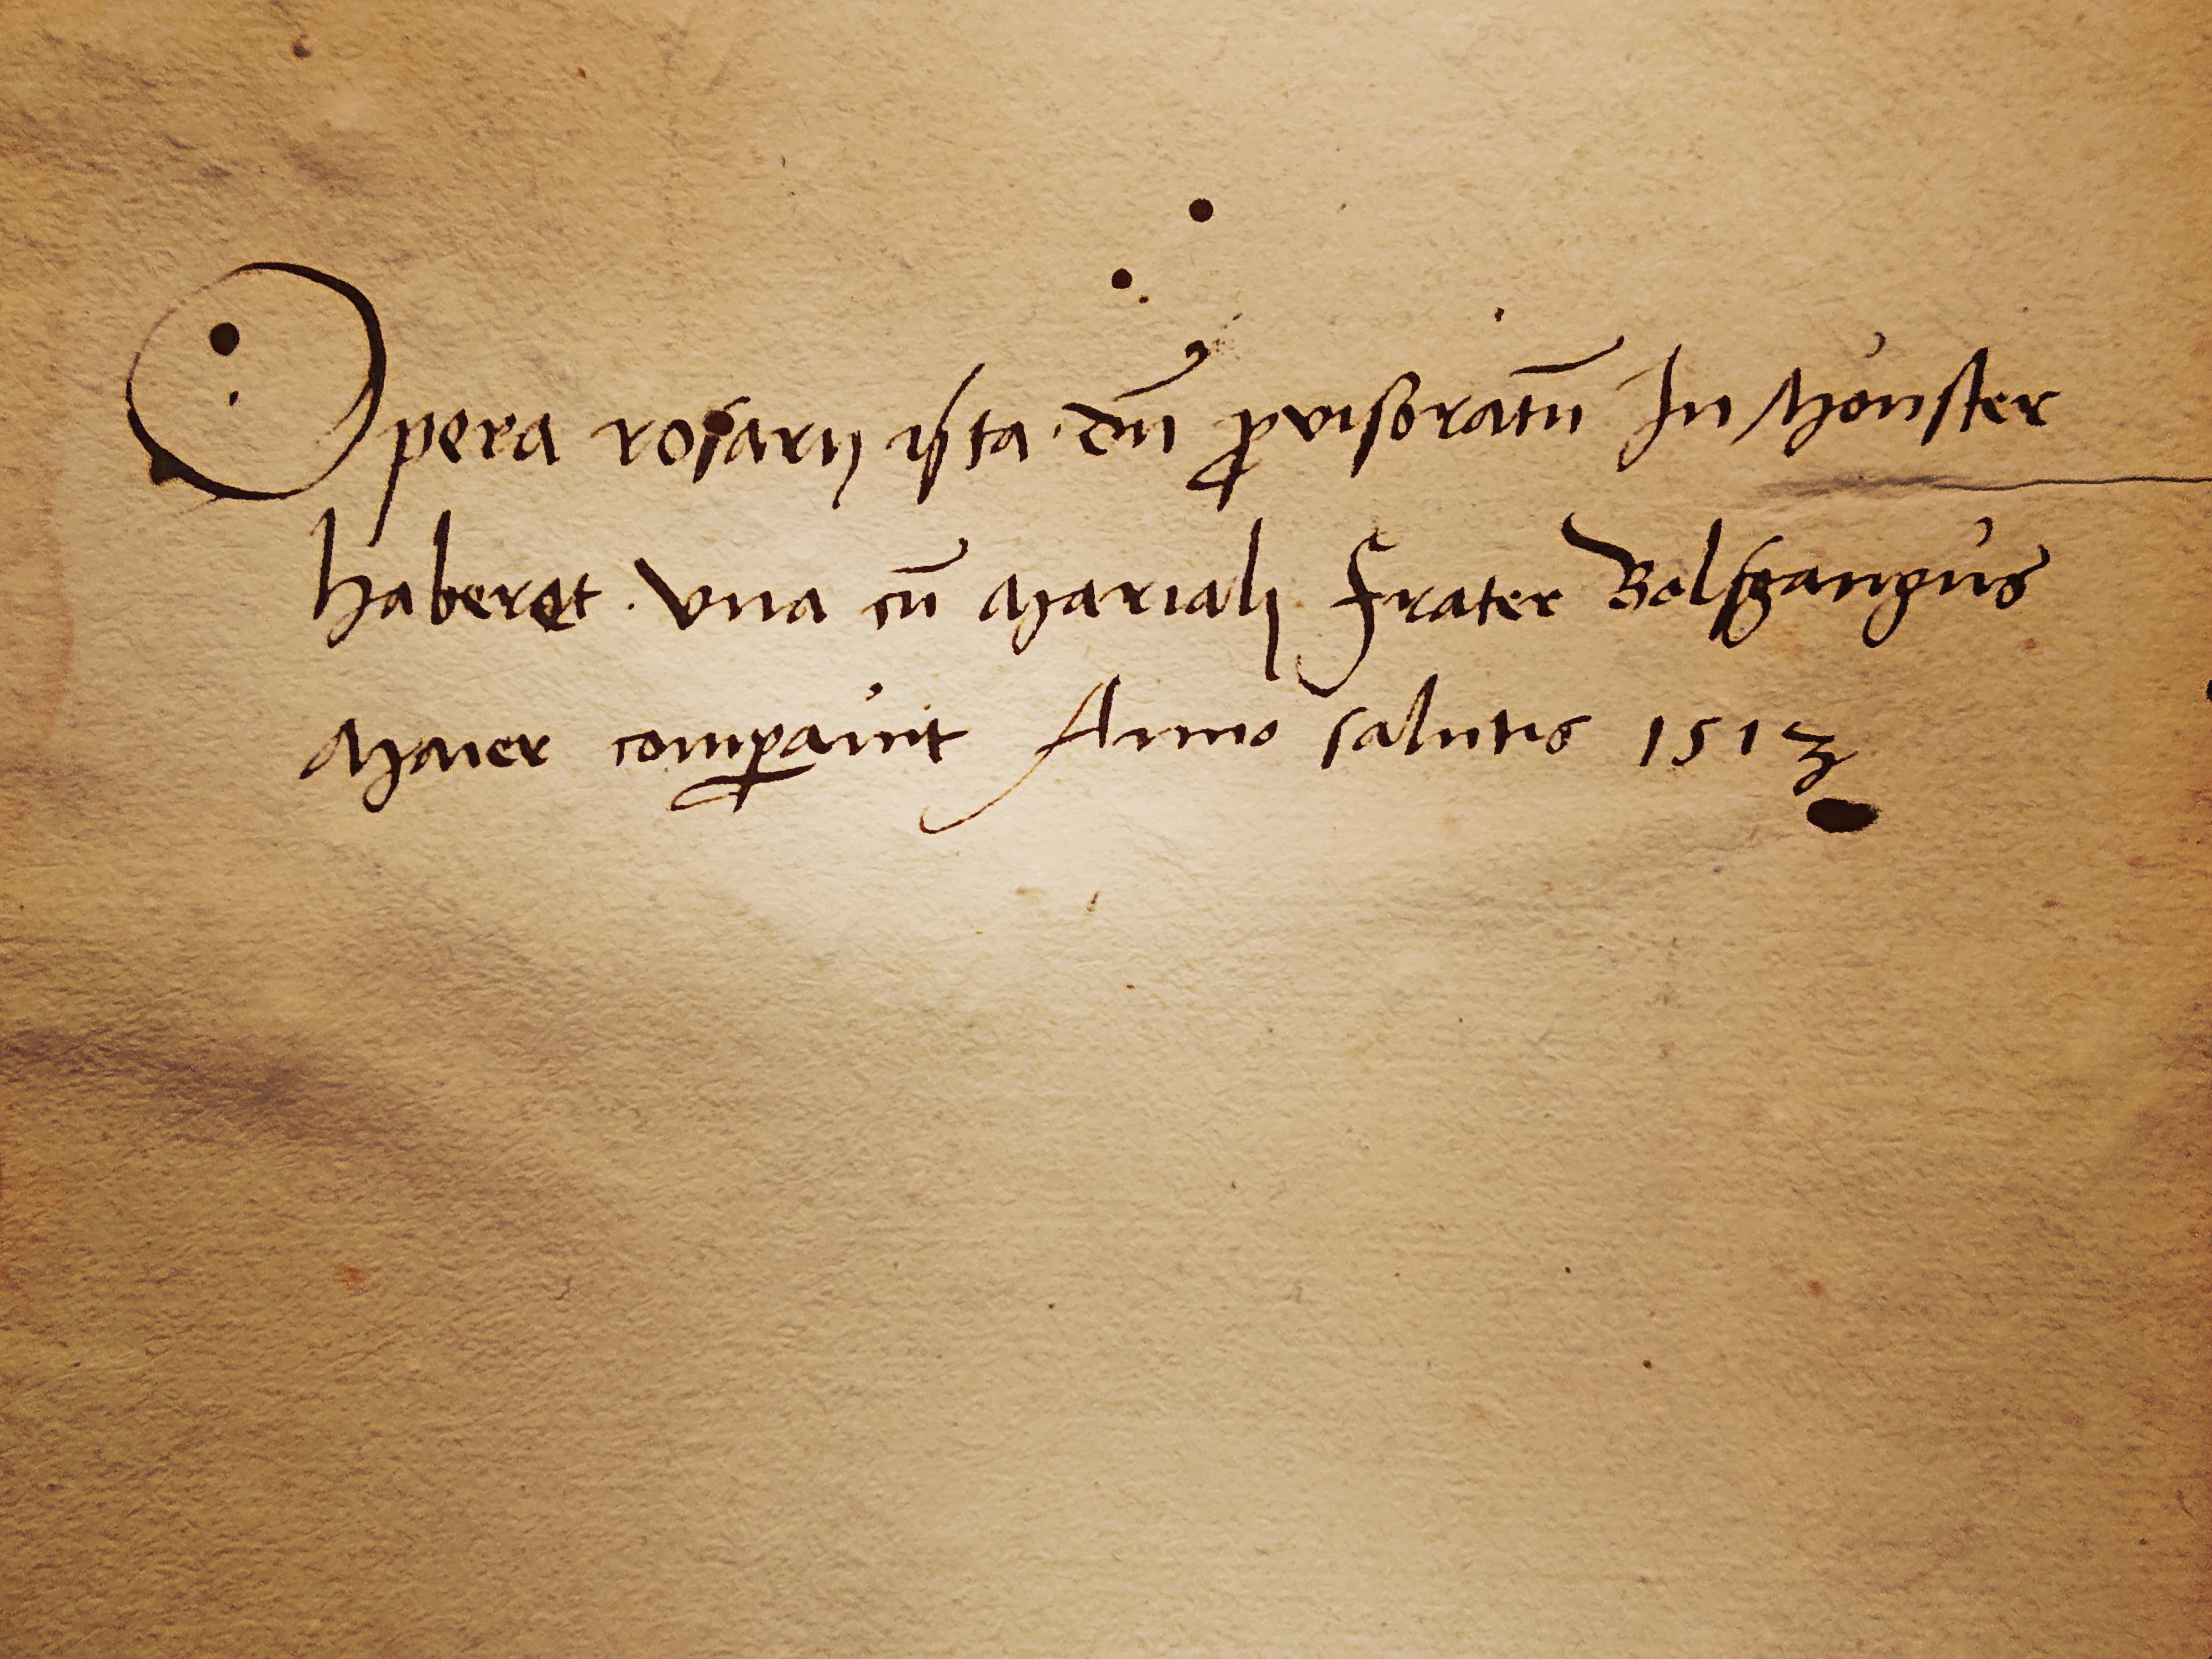 Opera rosarij ista dū ꝓvisoratū In Mönster
haberet. Vna cū Mariali frater Bolfgangus
Maier comꝑauit Anno salutis 1513